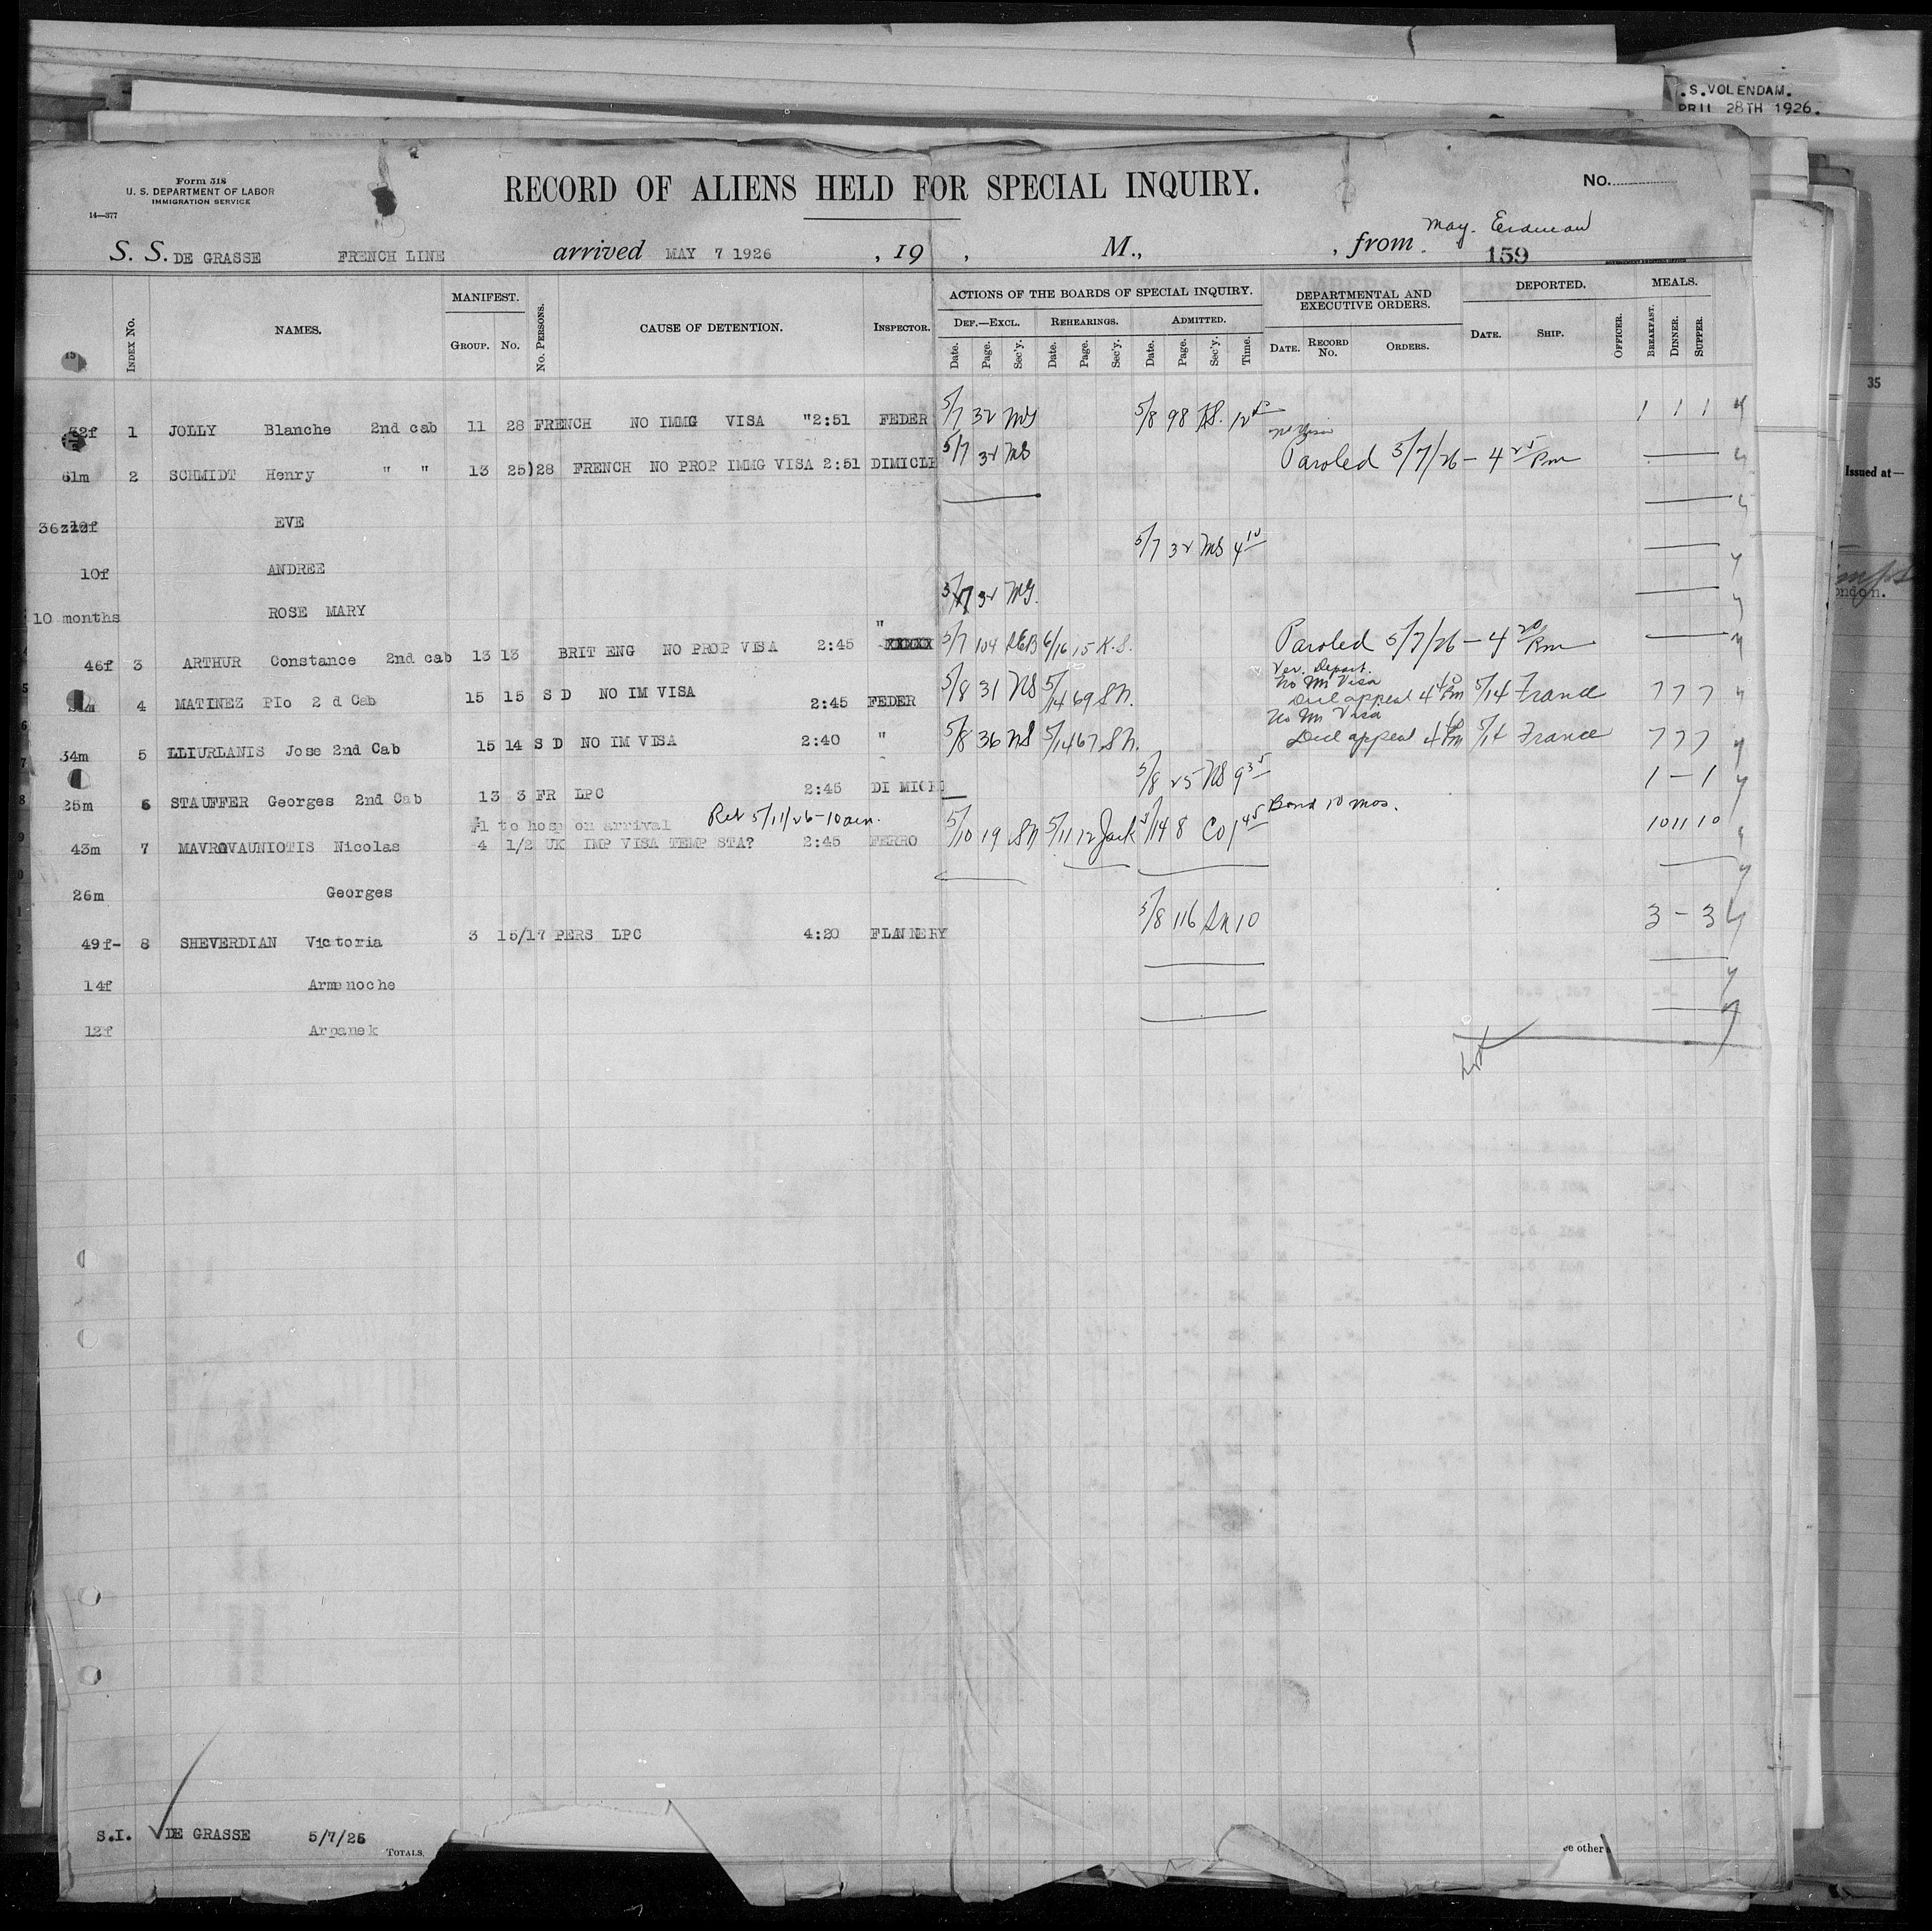 .S.VOLENDAM.
PRIL 28TH 1926.
Form 518
U. S. DEPARTMENT OF LABOR
IMMIGRATION SERVICE
14—377
RECORD OF ALIENS HELD FOR SPECIAL INQUIRY.
No.
S. S. DE GRASSE FRENCH LINE arrived MAY 7 1926 , 19 , M., , from May.
159
INDEX No. NAMES. MANIFEST. GROUP. No. No. PERSONS. CAUSE OF DETENTION. INSPECTOR. ACTIONS OF THE BOARDS OF SPECIAL INQUIRY. DEPARTMENTAL AND EXECUTIVE ORDERS. DEPORTED. MEALS.
DEF.—EXCL. REHEARINGS. ADMITTED.
Date. Page. Sec'y. Date. Page. Sec'y. Date. Page. Sec'y. Time. DATE. RECORD No. ORDERS. DATE. SHIP. OFFICER. BREAKFAST. DINNER. SUPPER.
35
32f 1 JOLLY Blanche 2nd cab 11 28 FRENCH NO IMMG VISA "2:51 FEDER 5/7 32 MS 5/8 98 12 1 1 1
61m 2 SCHMIDT Henry " " 13 25)28 FRENCH NO PROP IMMG VISA 2:51 DIMICLE 5/7 32 MS Paroled 5/7/26 - 4 25 Pm
Issued at—
EVE
10f ANDREE 5/7 32 MS 4 10
10 months ROSE MARY 5/7 32 MS.
ondon.
46f 3 ARTHUR Constance 2nd cab 13 13 BRIT ENG NO PROP VISA 2:45 " XXXXXX 5/7 104 6/16 15 K.S. Paroled 5/7/26 - 4 20 Pm
Ver. Depart.
No Im Visa
4 MATINEZ PIo 2 d Cab 15 15 S D NO IM VISA 2:45 FEDER 5/8 31 NS 5/14 69 SN. Decl appeal 4 40 Pm 5/14 France 7 7 7
No Im Visa
34m 5 LLIURLANIS Jose 2nd Cab 15 14 S D NO IM VISA 2:40 " 5/8 36 NS 5/14 67 SN. Decl appeal 4 40 Pm 5/14 France 7 7 7
25m 6 STAUFFER Georges 2nd Cab 13 3 FR LPC 2:45 DI MICE 5/8 25 NS 9 35 1 - 1
#1 to hosp on arrival Ret 5/11/26-10am. Bond 10 mos.
43m 7 MAVROVAUNIOTIS Nicolas 4 1/2 UK IMP VISA TEMP STA? 2:45 FERRO 5/10 19 SN 5/11 12 Jack 5/14 8 CO 1 45 10 11 10
26m Georges
49f- 8 SHEVERDIAN Victoria 3 15/17 PERS LPC 4:20 FLANNERY 5/8 116 SN 10 3 - 3
14f Armenoche
12f Arpanek
S.I. DE GRASSE 5/7/26
TOTALS,
ee other